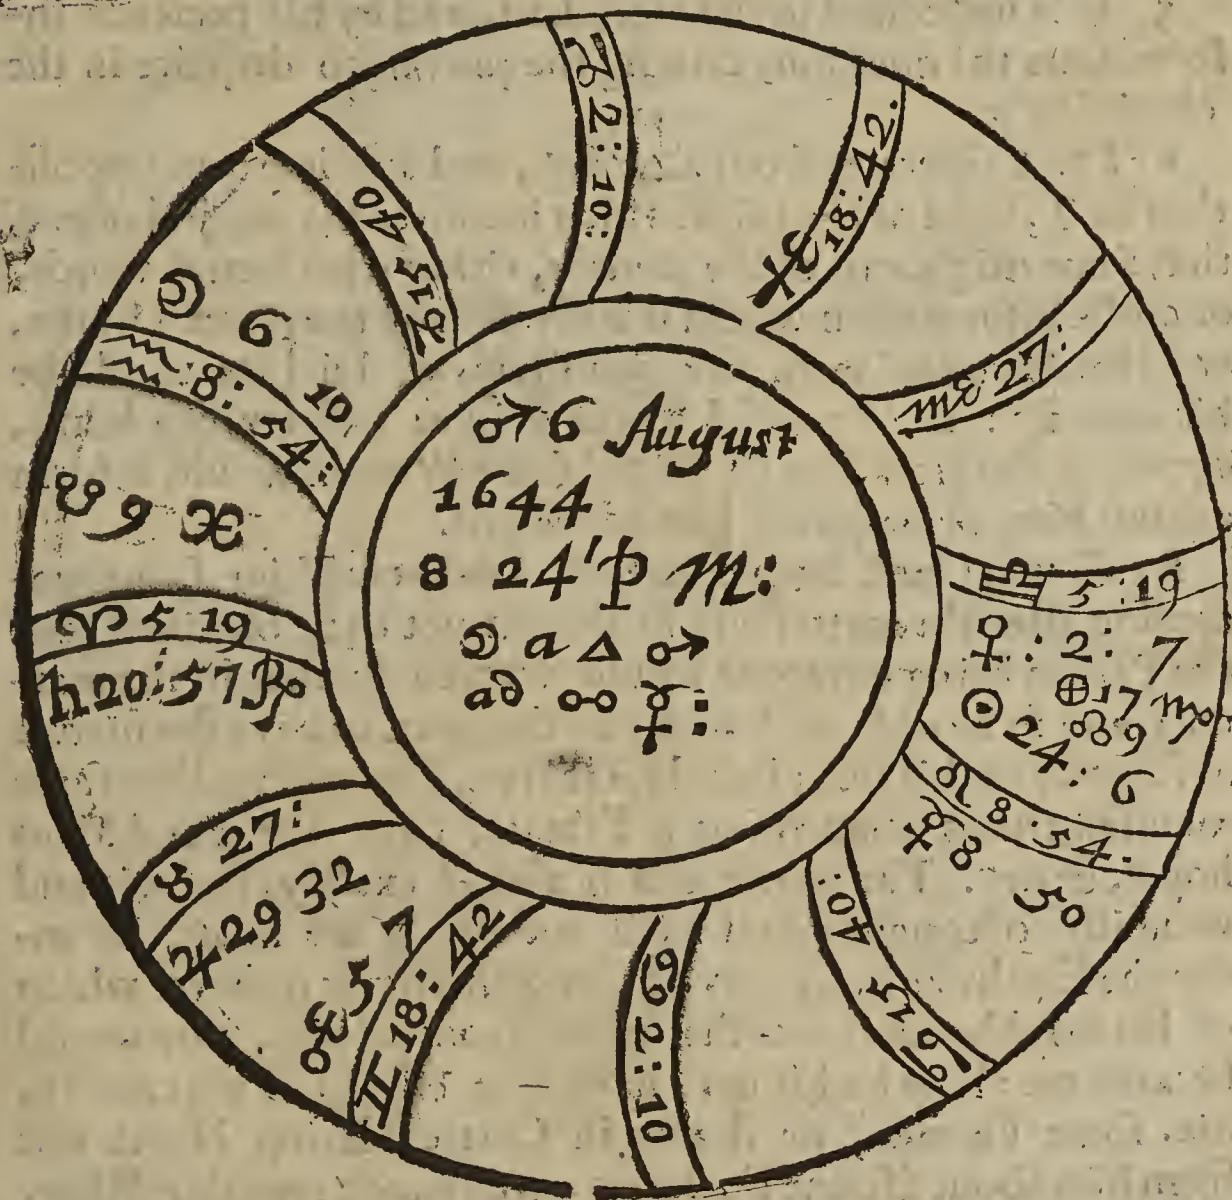 ♂ 6 August
1644
8 24' P M:
☽ a △ ♂
ad ☍ ☿:
♑ 2: 10:
♐ 18: 42.
♏ 27:
♎ 5: 19
♀: 2: 7
⊕ 17 ♍
☉ 24: 6
☊ 9
♌ 8 54.
☿ 8 50
♋ 15 40:
♋ 2: 10
♊ 18: 42
♂ 5 7
♃ 29 32
♉ 27:
♄ 20: 57 ℞
♈ 5 19
☋ 9 ♓
♒ 8: 54:
☽ 6 10
♑ 15 40